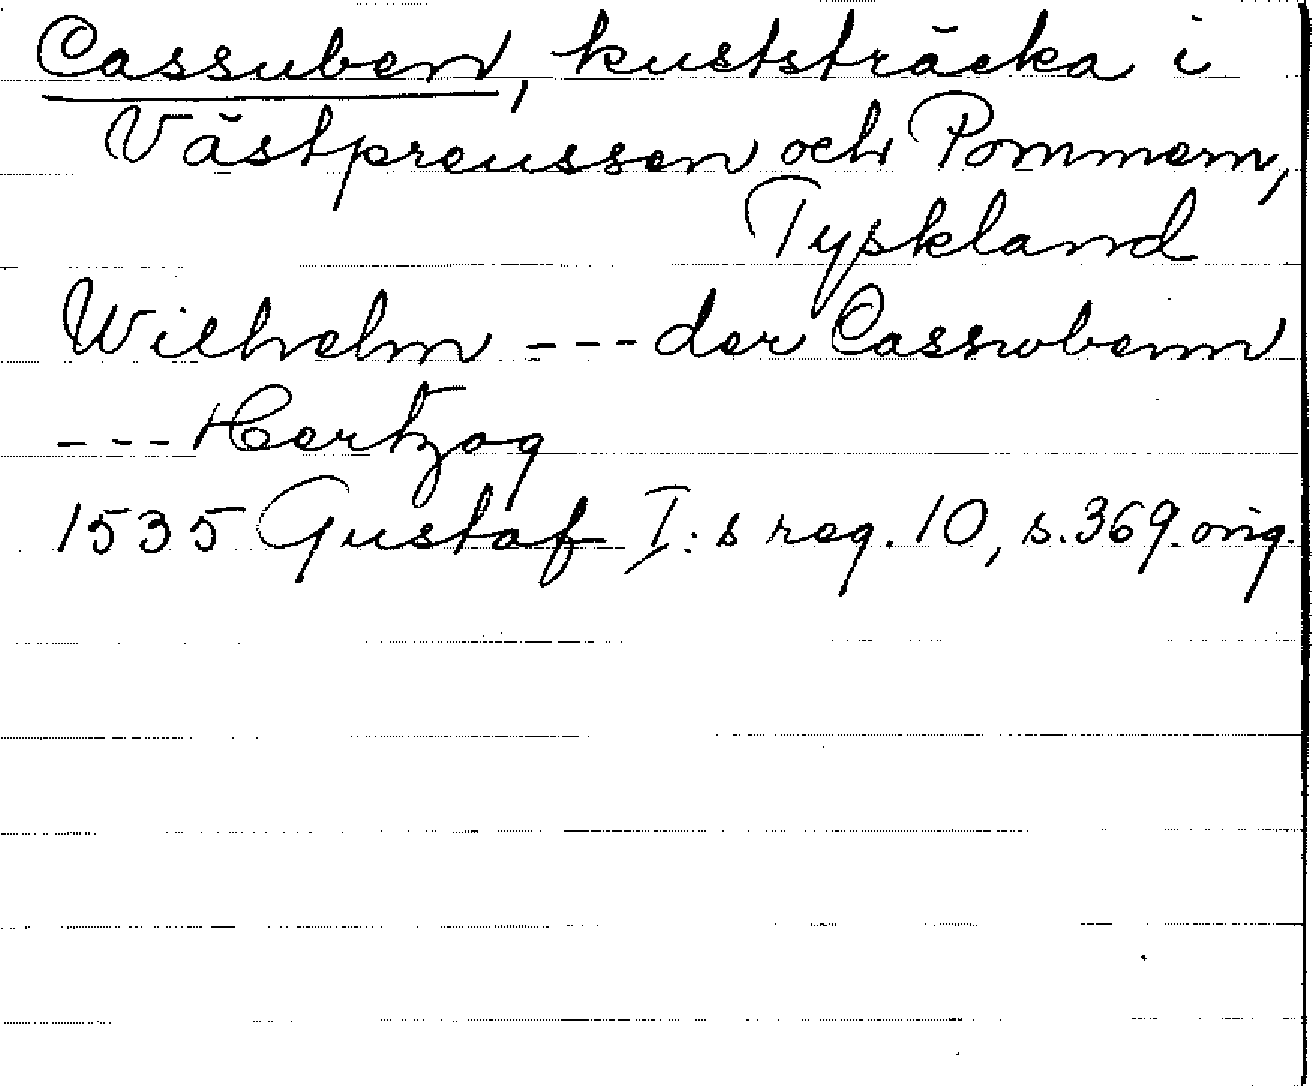 Cassuben, kuststräcka i
Västpreussen och Pommern,
Tyskland
Wilhelm --- der Cassubenn
--- Hertzog
1535 Gustaf I:s reg. 10, s. 369. orig.